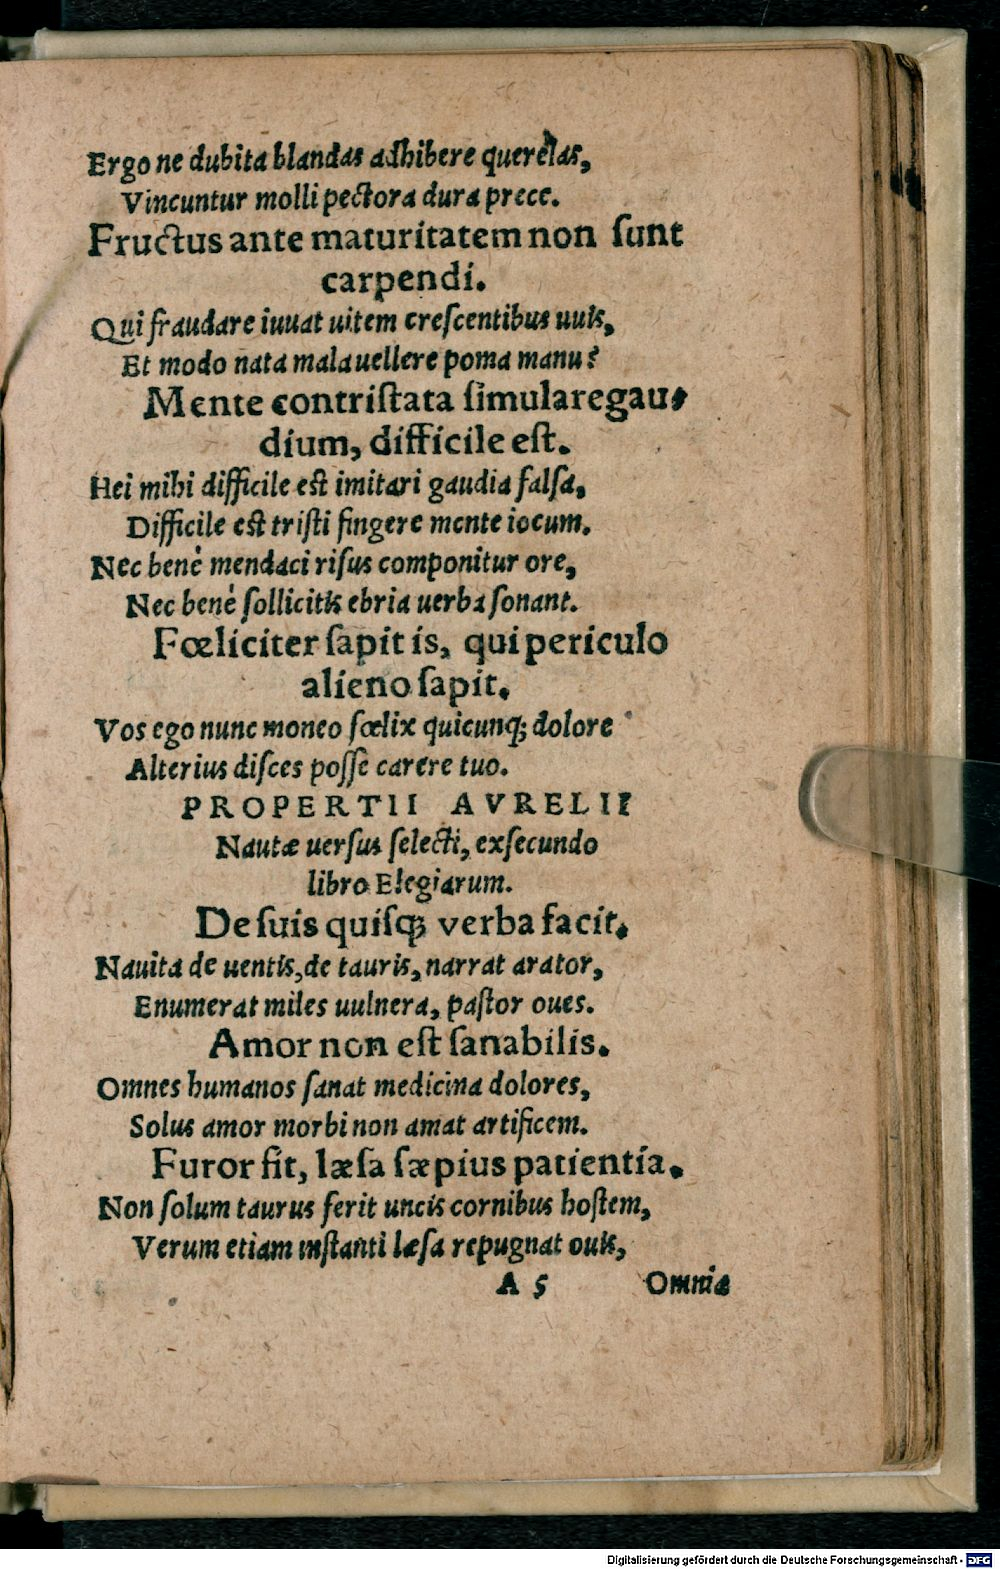 Ergo ne dubita blandas adhibere querelas,
Vincuntur molli pectora dura prece.
Fructus ante maturitatem non ſunt
carpendi.
Qui fraudare iuuat uitem creſcentibus uuis,
Et modo nata mala uellere poma manu?
Mente contriſtata ſimulare gau⸗
dium, difficile eſt.
Hei mihi difficile eſt imitari gaudia falſa,
Difficile eſt triſti fingere mente iocum.
Nec benè mendaci riſus componitur ore,
Nec benè ſollicitis ebria uerba ſonant.
Fœliciter ſapit is, qui periculo
alieno ſapit.
Vos ego nunc moneo fœlix quicunq; dolore
Alterius diſces poſſe carere tuo.
PROPERTII AVRELII
Nautæ uerſus ſelecti, ex ſecundo
libro Elegiarum.
De ſuis quiſq; verba facit.
Nauita de uentis, de tauris, narrat arator,
Enumerat miles uulnera, paſtor oues.
Amor non eſt ſanabilis.
Omnes humanos ſanat medicina dolores,
Solus amor morbi non amat artificem.
Furor fit, læſa ſæpius patientia.
Non ſolum taurus ferit uncis cornibus hoſtem,
Verum etiam inſtanti læſa repugnat ouis,
A 5 Omnia
Digitalisierung gefördert durch die Deutsche Forschungsgemeinschaft - DFG